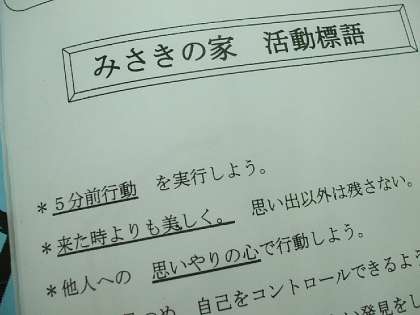 みさきの家　活動標語
＊５分前行動　を実行しよう。
＊来た時よりも美しく。　思い出以外は残さない。
＊他人への　思いやりの心で行動しよう。
自己をコントロールできるよう
発見をし